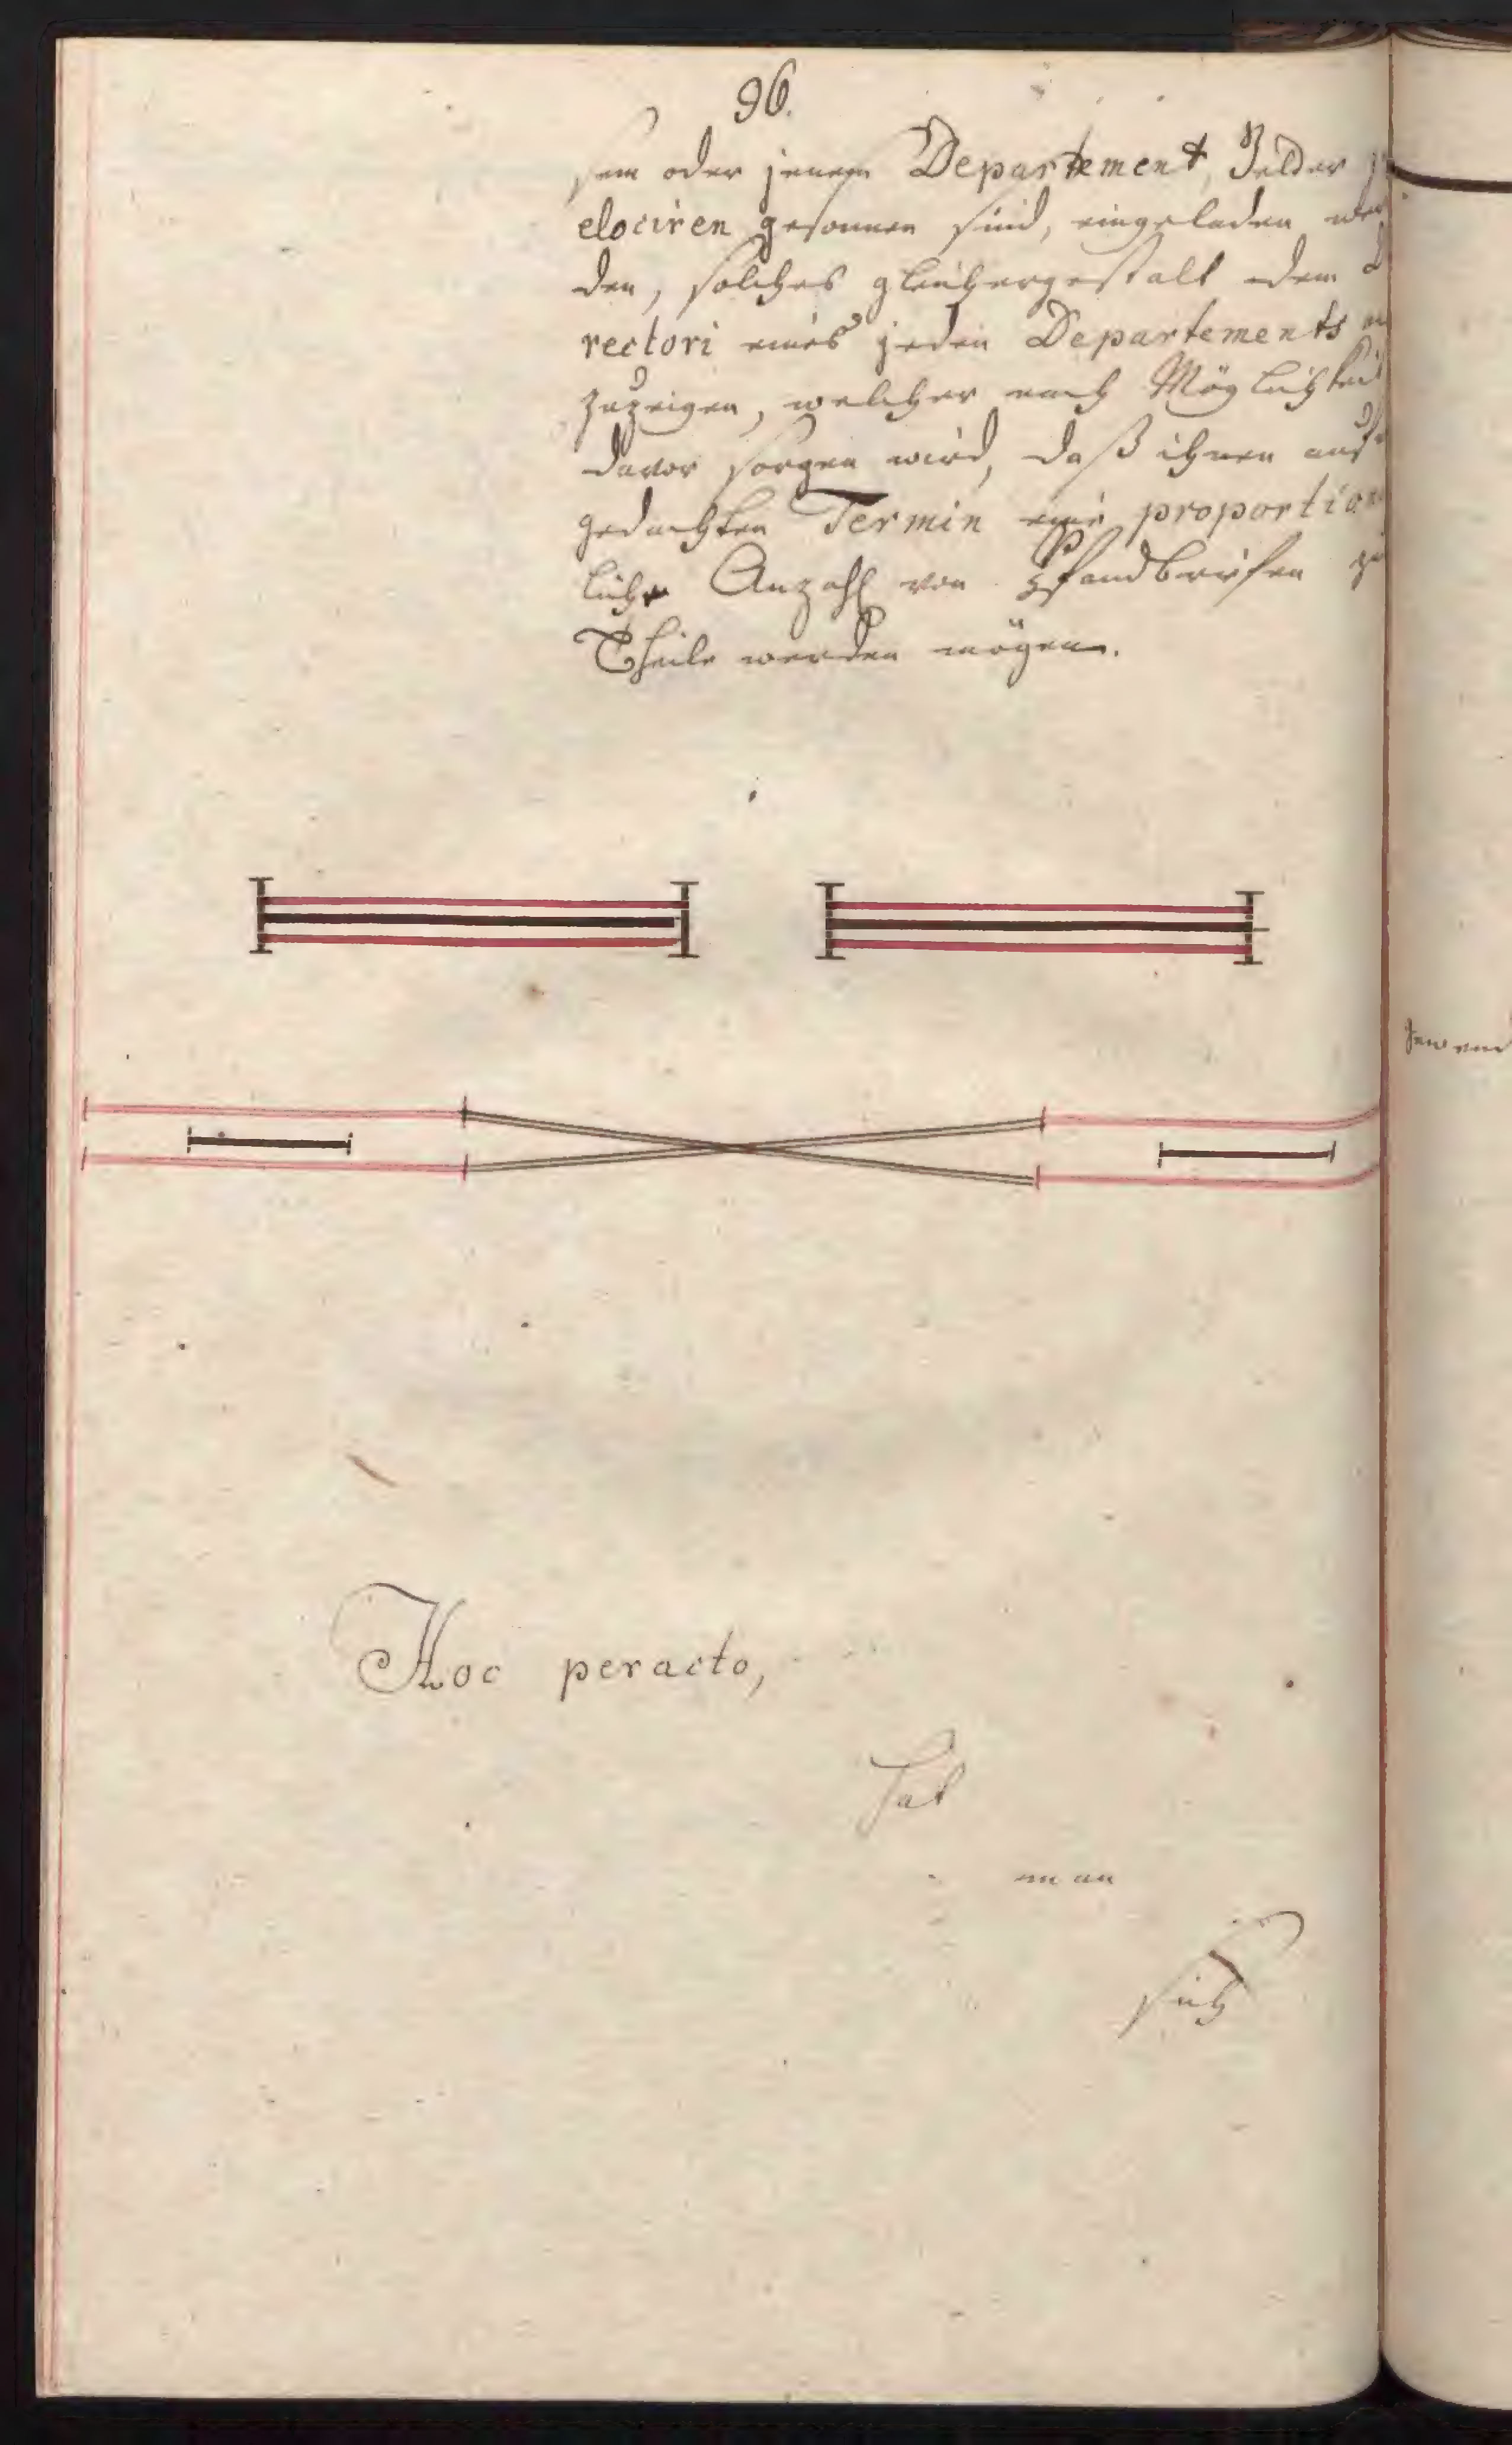 96.
sem oder jenem Departement, Gelder
elociren gesonnen sind, eingeladen wer
den, solches gleichergestalt dem D
rectori eines jeden Departements
zuzeigen, welcher nach Möglichkeit
davor sorgen wird, daß ihnen auf
gedachten Termin eine proportion
liche Anzahl von Pfandbriefen zu
Theile werden mögen.
Hoc peracto,
hat
man
sich